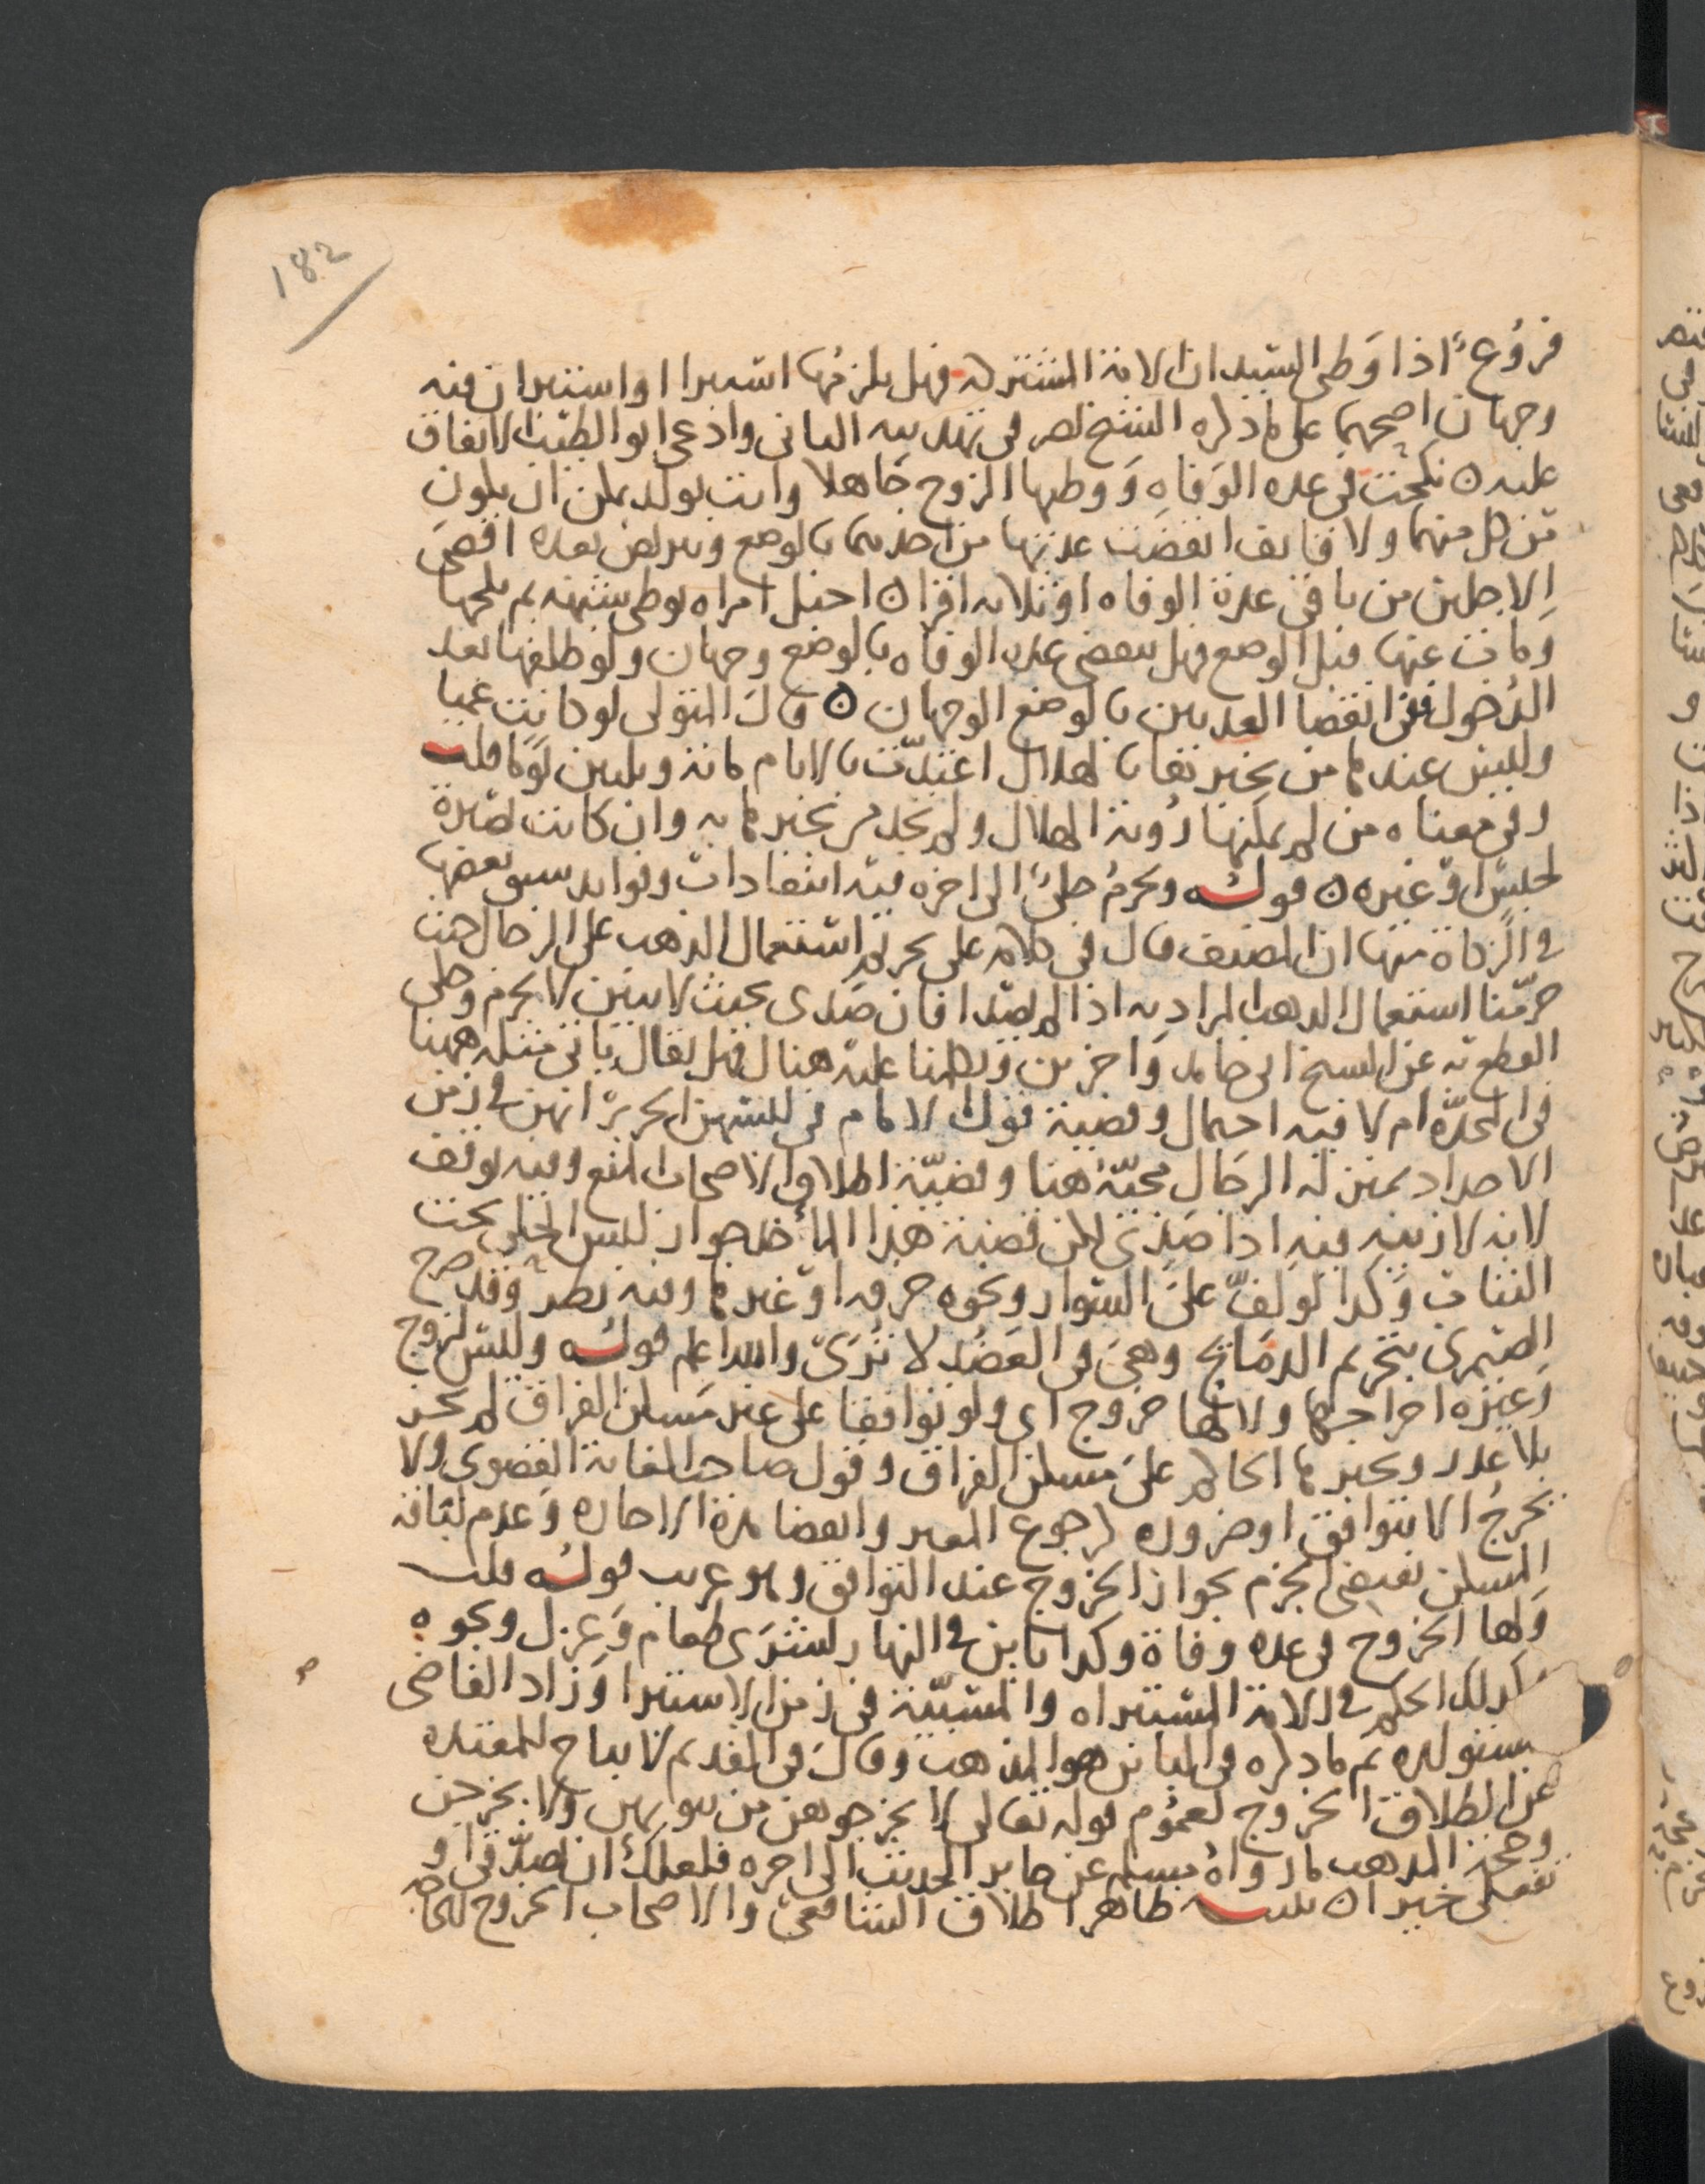 182
فروع اذا وطى السيدان الامة المشتركه فهل يلزمها استبرا او استبران فيه
وجهان اصحهما على ما ذكره الشيخ نصر فى تهذيبه الثانى وادعى ابو الطيب الاتفاق
عليه ه نكحت فى عده الوفاه ووطيها الزوج جاهلا واتت بولد يمكن ان يكون
من كل منهما ولا قايف انقضت عدتها من احدهما بالوضع وتتربص بعده اقصى
الاجلين من باقى عدة الوفاه او ثلاثه اقرا ه احبل امراه بوطى شبهه ثم نكحها
ومات عنها قبل الوضع فهل تنقضى عده الوفاه بالوضع وجهان ولو طلقها بعد
الدخول ففى انقضا العدتين بالوضع الوجهان ه قال المتولى لو كانت عميا
وليس عندها من يخبرها بالهلال اعتدت بالايام مائة وثلثين يوما قلت
وفى معناه من لم يمكنها روية الهلال ولم تجد من يخبرها به وان كانت بصيرة
لحبس او غيره ه قوله ويحرم حلى الى اخره فيه انتقادات وفوايد سبق بعضها
فى الزكاة منها ان المصنف قال فى كلامه على تحريم استعمال الذهب على الرجال حيث
حرمنا استعمال الذهب المراد به اذا لم يصدا فان صدى بحيث لا يبين لا يحرم وحكى
القطع به عن الشيخ ابى حامد واخرين وتكلمنا عليه هناك فهل يقال ياتى مثله ههنا
فى المحدة ام لا فيه احتمال وقضية قول الامام فى لبسهن الحرير انهن فى زمن
الاحداد بمنزلة الرجال مجيئه هنا وقضية اطلاق الاصحاب المنع وفيه توقف
لانه لا زينه فيه اذا صدى لكن قضية هذا المأخذ جواز لبس الحلى تحت
الثياب وكذا لو لف على السوار ونحوه خرقه او غيرها وفيه نظر وقد صرح
الصيمرى بتحريم الدمالج وهى فى العضد لا ترى والله اعلم قوله وليس لزوج
وغيره اخراجها ولا لها خروج اى ولو توافقا على غير مسكن الفراق لم يجز
بلا عذر ويجبرها الحاكم على مسكن الفراق وقول صاحب الغاية القصوى ولا
يخرج الا بتوافق او ضروره لرجوع المعير وانقضا مدة الاجاره وعدم لياقه
المسكن تقتضى الجزم بجواز الخروج عند التوافق وهو غريب قوله قلت
ولها الخروج فى عده وفاة وكذا باين فى النهار لشرى طعام وغزل ونحوه
كذلك الحكم فى الامة المشتراه والمسبية فى زمن الاستبرا وزاد القاضى
مستولده ثم ما ذكره فى الباين هو المذهب وقال فى القديم لا يباح للمعتده
عن الطلاق الخروج لعموم قوله تعالى لا تخرجوهن من بيوتهن ولا يخرجن
وحجة المذهب ما رواه مسلم عن جابر الحديث الى اخره فلعلك ان تصدقى او
تفعلى خيرا ه قلت ظاهر اطلاق الشافعى والاصحاب الخروج للحاجه